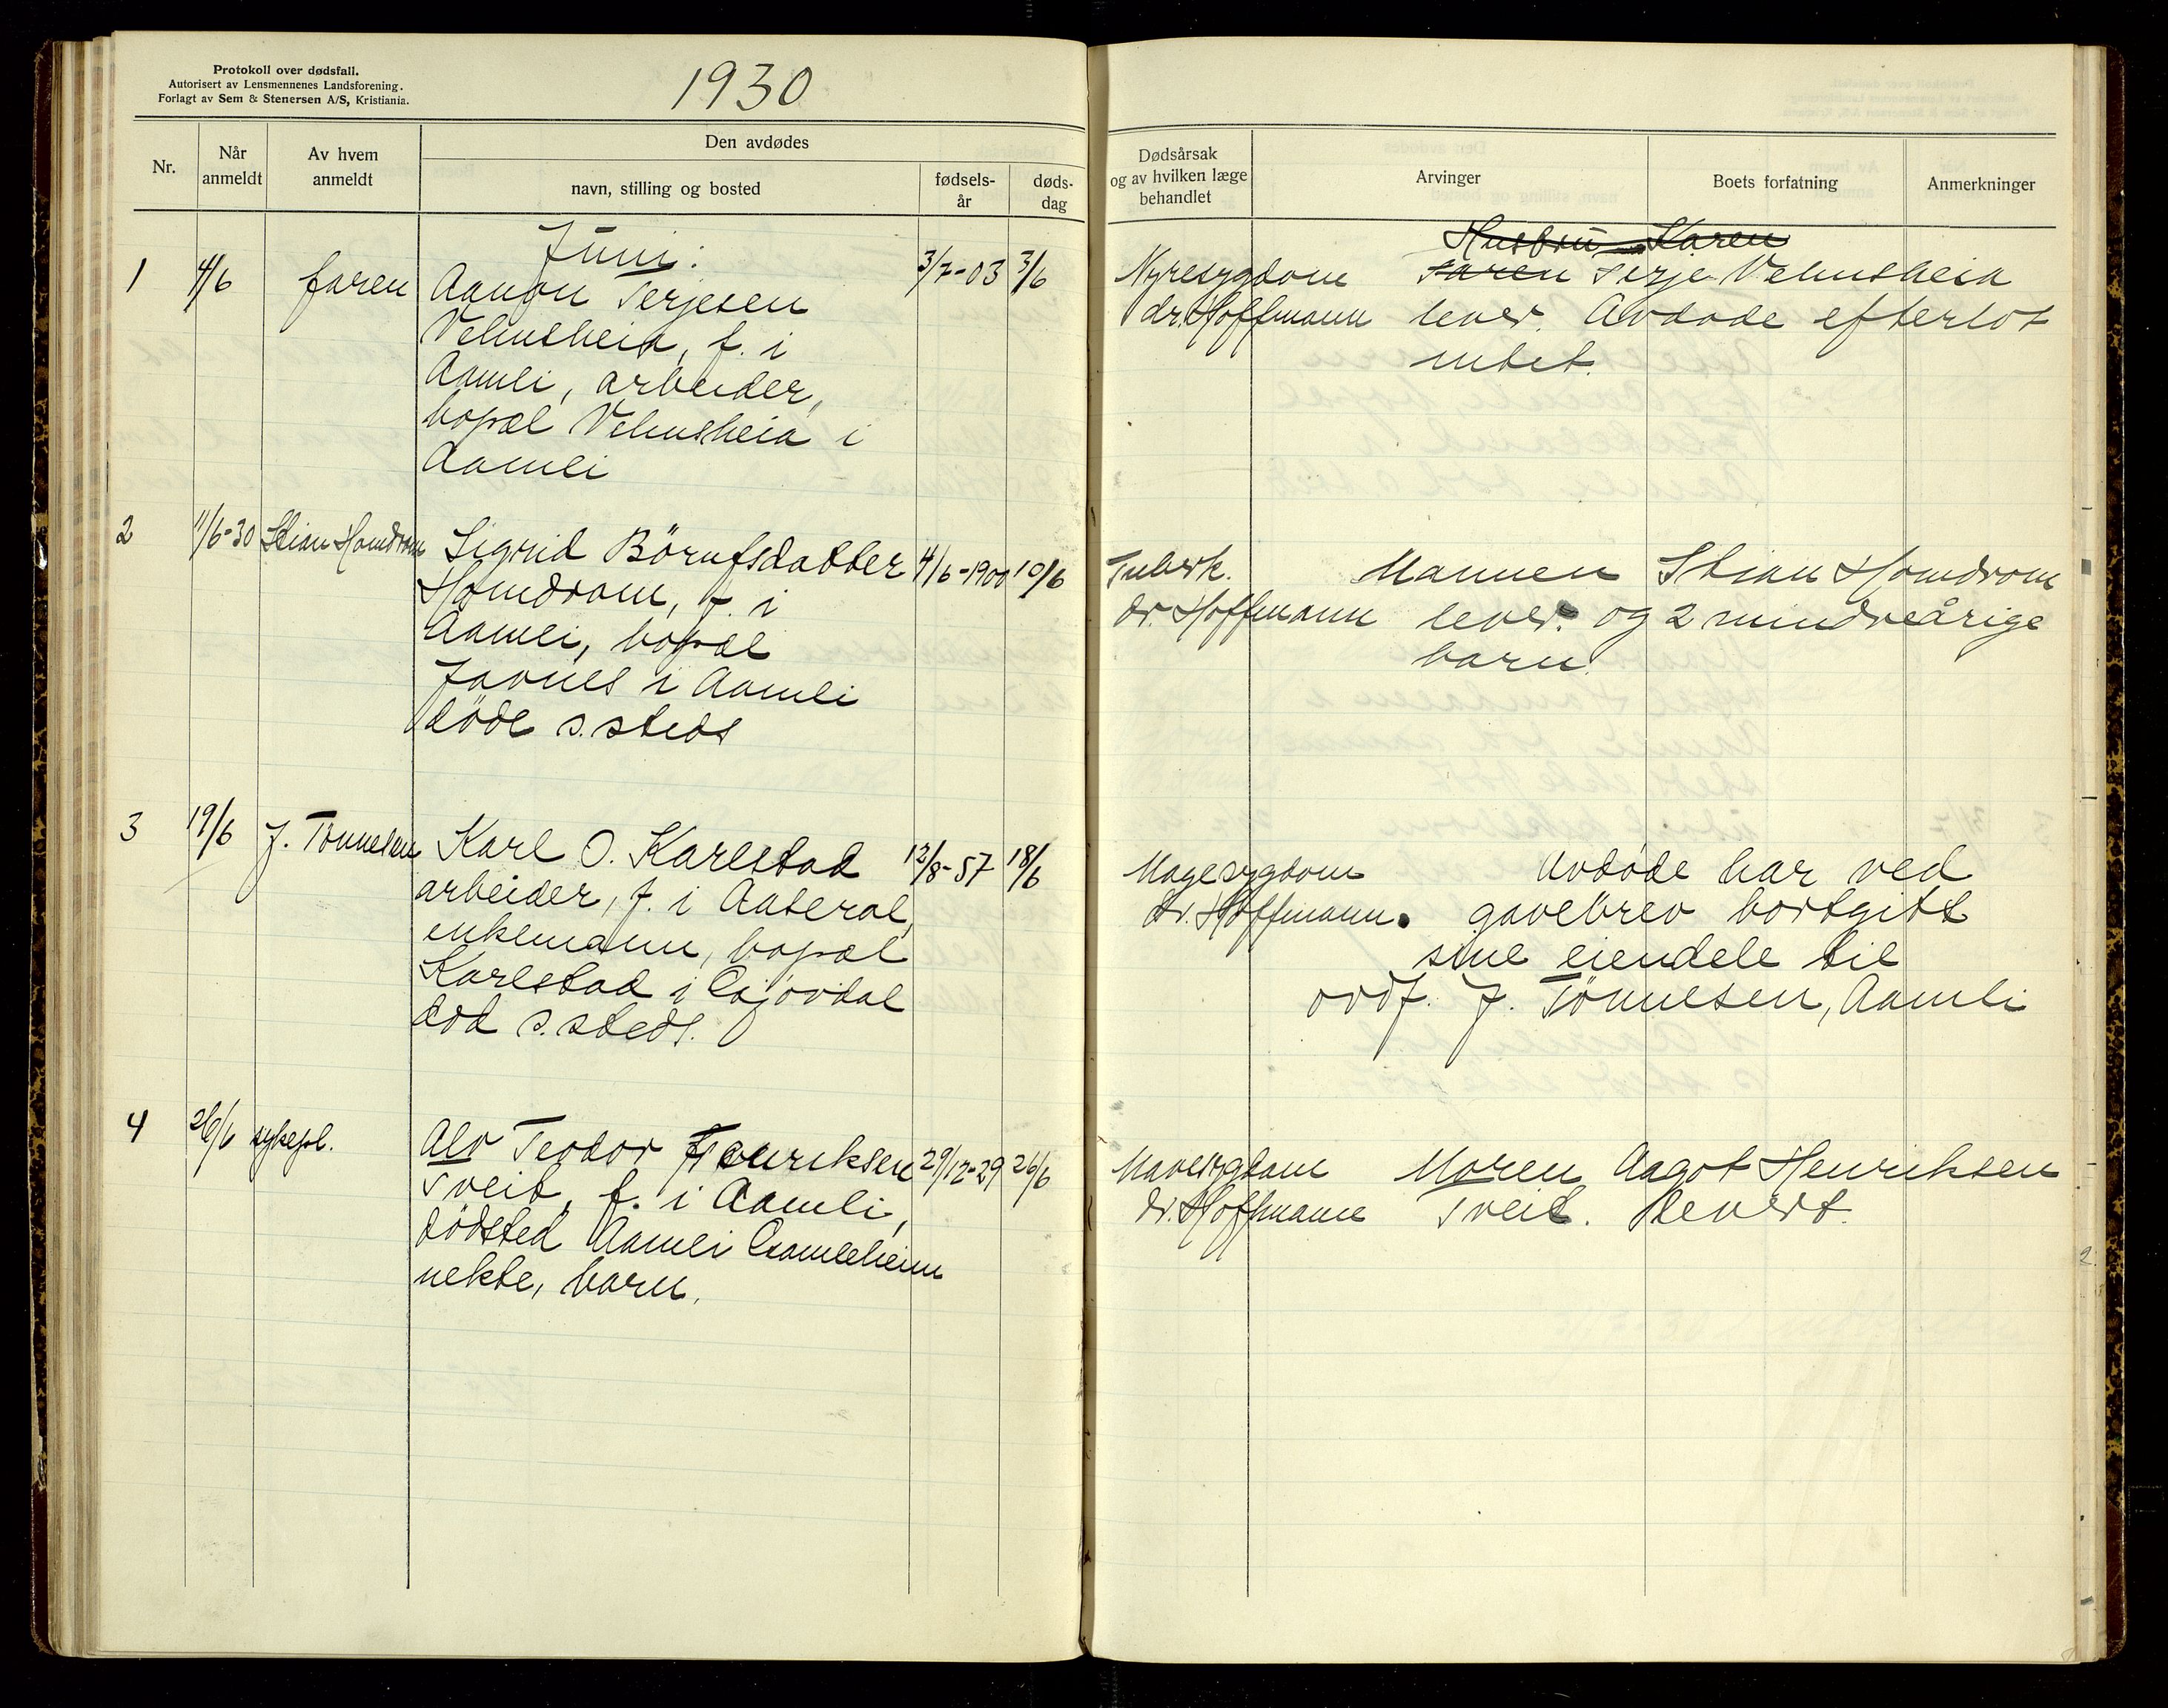 Protokoll over dødsfall.
Autorisert av Lensmennenes Landsforening.
Forlagt av Sem & Stenersen A/S, Kristiania.
1930
Nr.
Når anmeldt
Av hvem anmeldt
Den avdødes
navn, stilling og bosted
fødsels-år
døds-dag
Dødsårsak og av hvilken læge behandlet
Arvinger
Boets forfatning
Anmerkninger
Juni:
1 4/6 faren Aanon Terjesen 3/7-03 3/6
Velensheia, f. i
Aamli, arbeider,
bopæl Velensheia i
Aamli
Nyresygdom
dr. Hoffmann
Husbru Karen
Faren Terje Velensheia
lever. Avdøde efterlot
intet.
2 11/6-30 Stian Homdrom Sigrid Börufsdatter 4/6-1900 10/6
Homdrom, f. i
Aamli, bopæl
i Aamli
döde s. steds
Tuberk.
dr. Hoffmann
Mannen Stian Homdrom
lever. og 2 mindreårige
barn.
3 19/6 J. Tønnesen Karl O. Karlstad 12/8-57 18/6
arbeider, f. i Aaseral,
enkemann, bopæl
Karlstad i Gjøvdal
død s. steds.
Magesygdom
dr. Hoffmann.
Avdøde har ved
gavebrev bortgitt
sine eiendele til
ordf. J. Tönnesen, Aamli
4 26/6 sykepl. Alv Teodor Henriksen 29/12-29 26/6
Tveit, f. i Aamli,
dödsted Aamli Gamleheim
uekte, barn.
Mavesygdom
dr. Hoffmann
Moren Aagot Henriksen
Tveit.